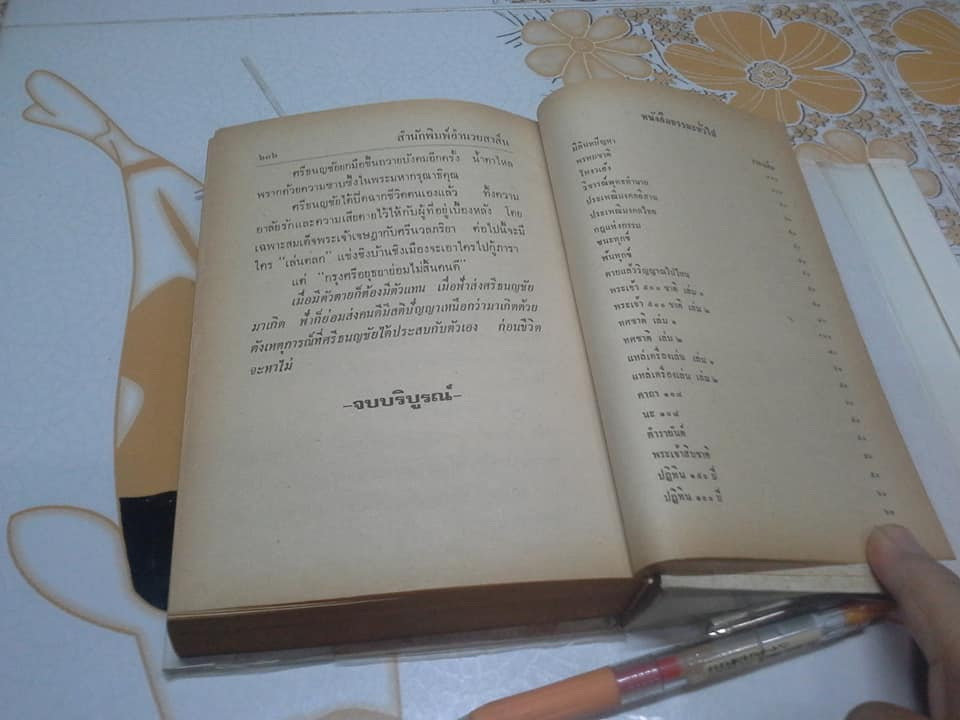 ๖๓๖ สำนักพิมพ์อำนวยสาส์น
ศรีธนญชัยยกมือขึ้นถวายบังคมอีกครั้ง น้ำตาไหล
พรากด้วยความซาบซึ้งในพระมหากรุณาธิคุณ
ศรีธนญชัยได้ปิดฉากชีวิตตนเองแล้ว ทิ้งความ
อาลัยรักและความเสียดายไว้ให้กับผู้ที่อยู่เบื้องหลัง โดย
เฉพาะสมเด็จพระเจ้าเจษฎากับศรีนวลภริยา ต่อไปนี้จะมี
ใคร "เล่นตลก" แข่งชิงบ้านชิงเมืองจะเอาใครไปกู้ภารา
แต่ "กรุงศรีอยุธยาย่อมไม่สิ้นคนดี"
เมื่อมีตัวตายก็ต้องมีตัวแทน เมื่อฟ้าส่งศรีธนญชัย
มาเกิด ฟ้าก็ย่อมส่งคนดีมีสติปัญญาเหนือกว่ามาเกิดด้วย
ดังเหตุการณ์ที่ศรีธนญชัยได้ประสบกับตัวเอง ก่อนชีวิต
จะหาไม่
-จบบริบูรณ์-
หนังสือธรรมะทั่วไป
มิลินทปัญหา
พรหมชาติ
ไหงวเฮ้ง
วิจารณ์พุทธทำนาย
ประเพณีมงคลอิสาน
ประเพณีมงคลไทย
กฎแห่งกรรม
ชนะทุกข์
พ้นทุกข์
ตายแล้ววิญญาณไปไหน
พระเจ้า ๕๐๐ ชาติ เล่น ๑
พระเจ้า ๕๐๐ ชาติ เล่น ๒
ทศชาติ เล่น ๑
ทศชาติ เล่น ๒
แหล่เครื่องเล่น เล่น ๑
แหล่เครื่องเล่น เล่น ๒
คาถา ๑๐๘
นะ ๑๐๘
ตำรายันต์
พระเจ้าสิบชาติ
ปฏิทิน ๑๕๐ ปี
ปฏิทิน ๑๐๐ ปี